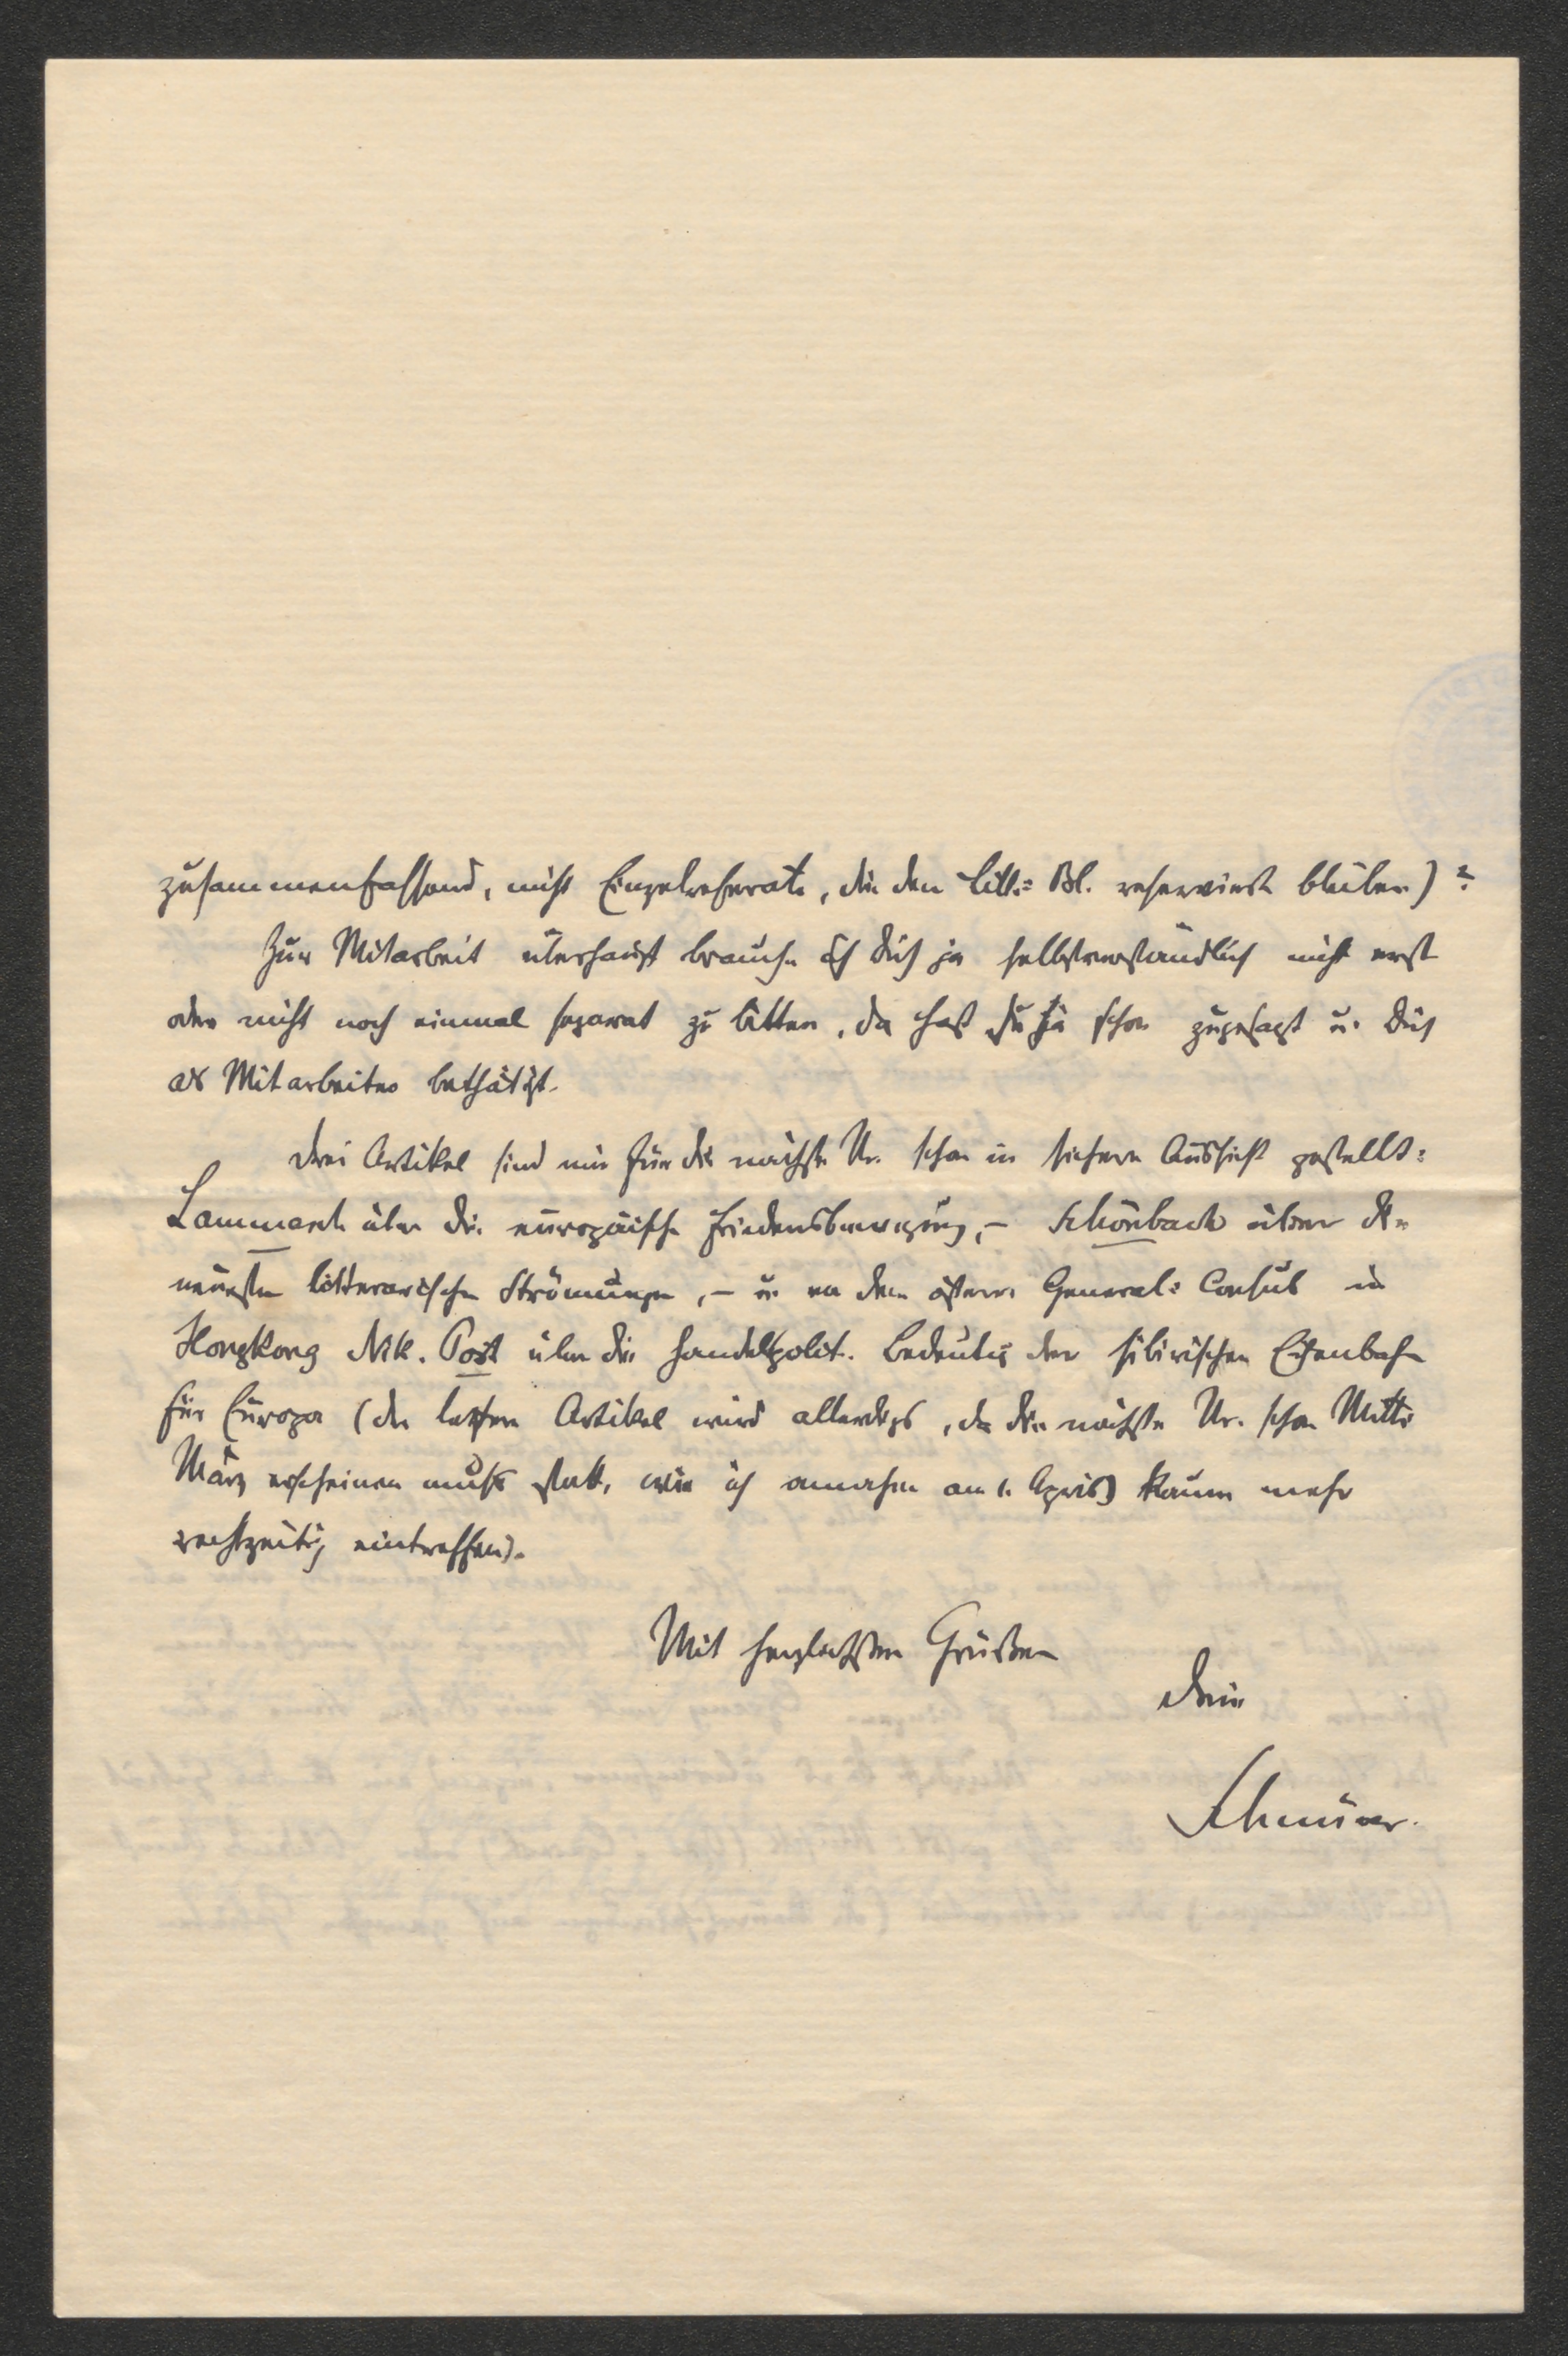 zusammenfassend, nicht Einzelreferate, die dem Litt.-Bl. reserviert bleiben)?
Zur Mitarbeit überhaupt brauche ich Dich ja selbstverständlich nicht erst
oder nicht noch einmal separat zu bitten, da hast Du ja schon zugesagt u. Dich
als Mitarbeiter bethätigt.
Drei Artikel sind mir für die nächste Nr. schon in sichere Aussicht gestellt:
Lammasch über die europäische Friedensbewegung, – Schönbach über die
neuesten litterarischen Strömungen, – u. von dem österr. General-Consul in
Hongkong Nik. Post über die handelspolit. Bedeutung der sibirischen Eisenbahn
für Europa (der letztere Artikel wird allerdings, da die nächste Nr. schon Mitte
März erscheinen muß statt, wie ich annahm am 1. April) kaum mehr
rechtzeitig eintreffen).
Mit herzlichsten Grüßen
Dein
Schnürer.